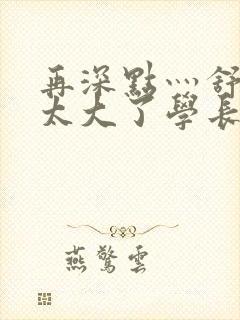 再深點灬舒
太大了學長
燕驚雲